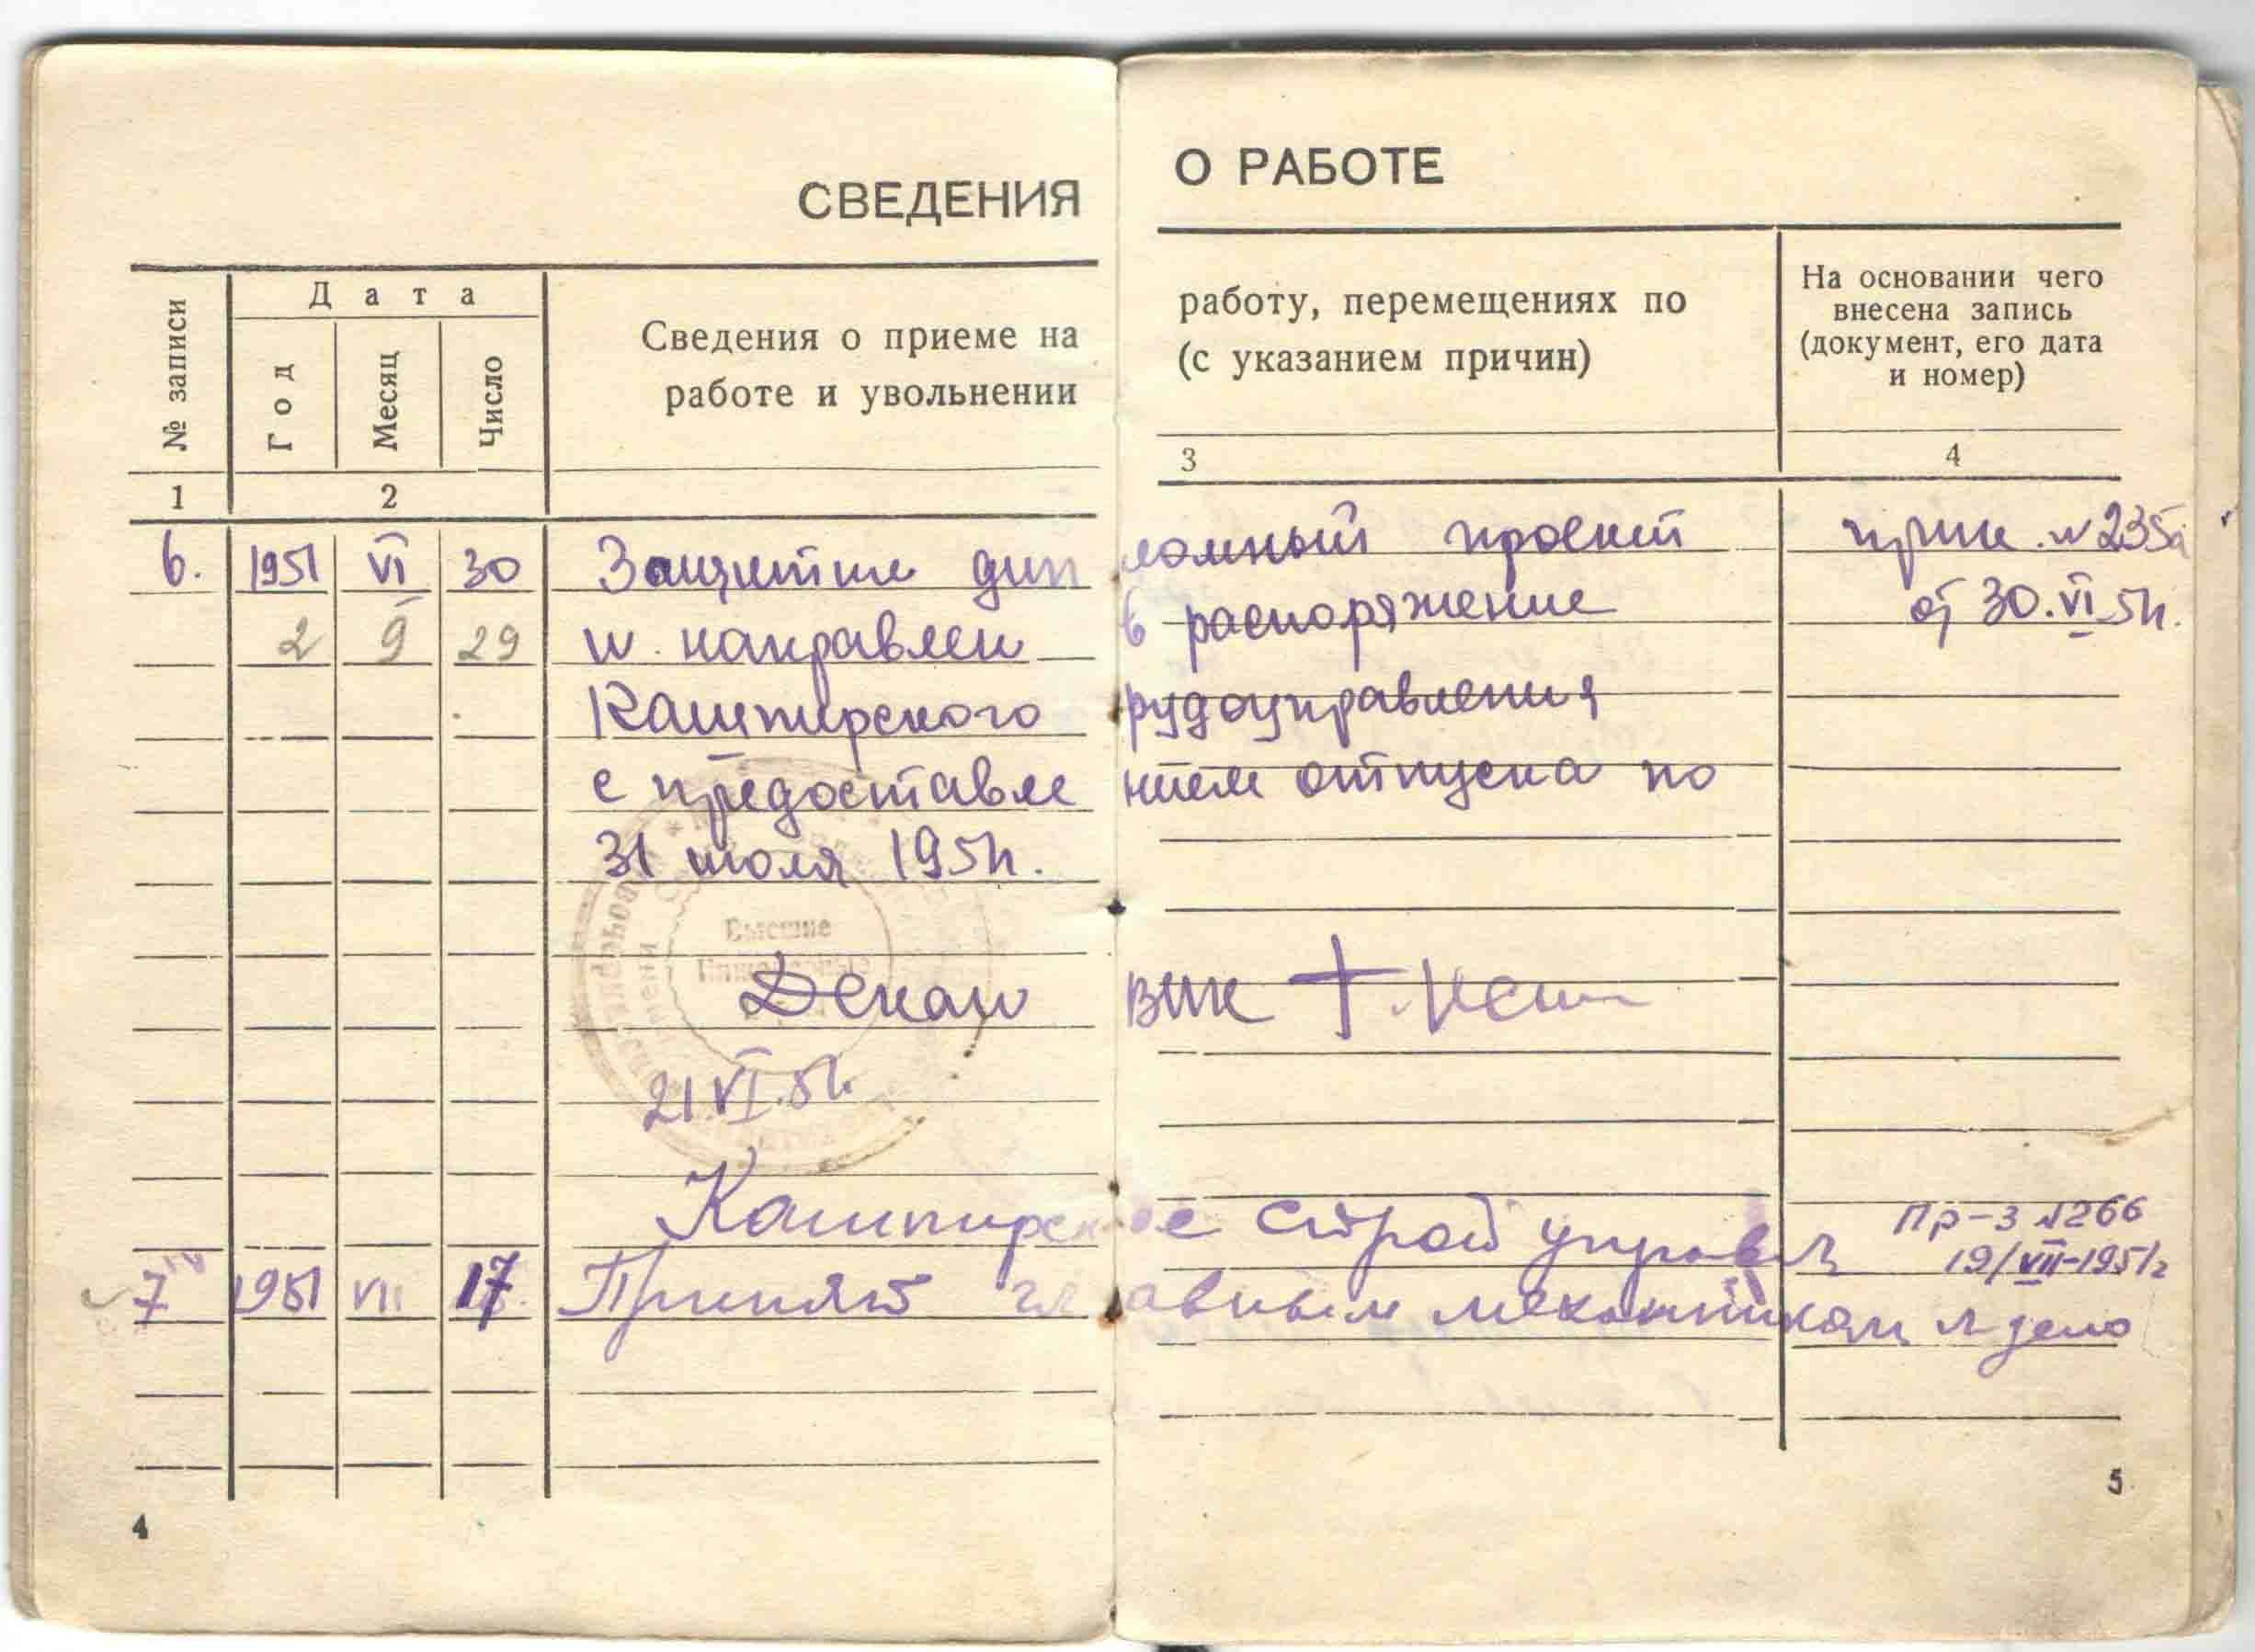 СВЕДЕНИЯ О РАБОТЕ
№ записи
Дата
Год
Месяц
Число
Сведения о приеме на работу, перемещениях по
работе и увольнении (с указанием причин)
На основании чего
внесена запись
(документ, его дата
и номер)
1 2 3 4
6. 1951 VI 30 Защитил дипломный проект прик. № 235а
2 9 29 и направлен в распоряжение от 30.VI 51г.
Кашпирского рудоуправления
с предоставлением отпуска по
31 июля 1951г.
Высшие
Инженерные
Декан ВИК
21 VI.51г.
Кашпирское Строй управл Пр-з №266
19/VII-1951г
7 1951 VII 17 Принят главным механиком л дело
4
5